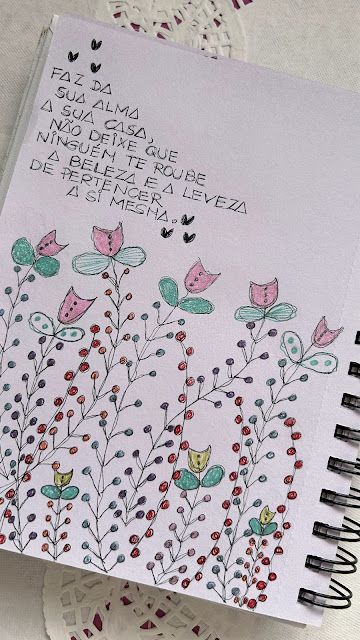 FAZ DA
SUA ALMA
A SUA CASA,
NÃO DEIXE QUE
NINGUÉM TE ROUBE
A BELEZA E A LEVEZA
DE PERTENCER
A SI MESMA.